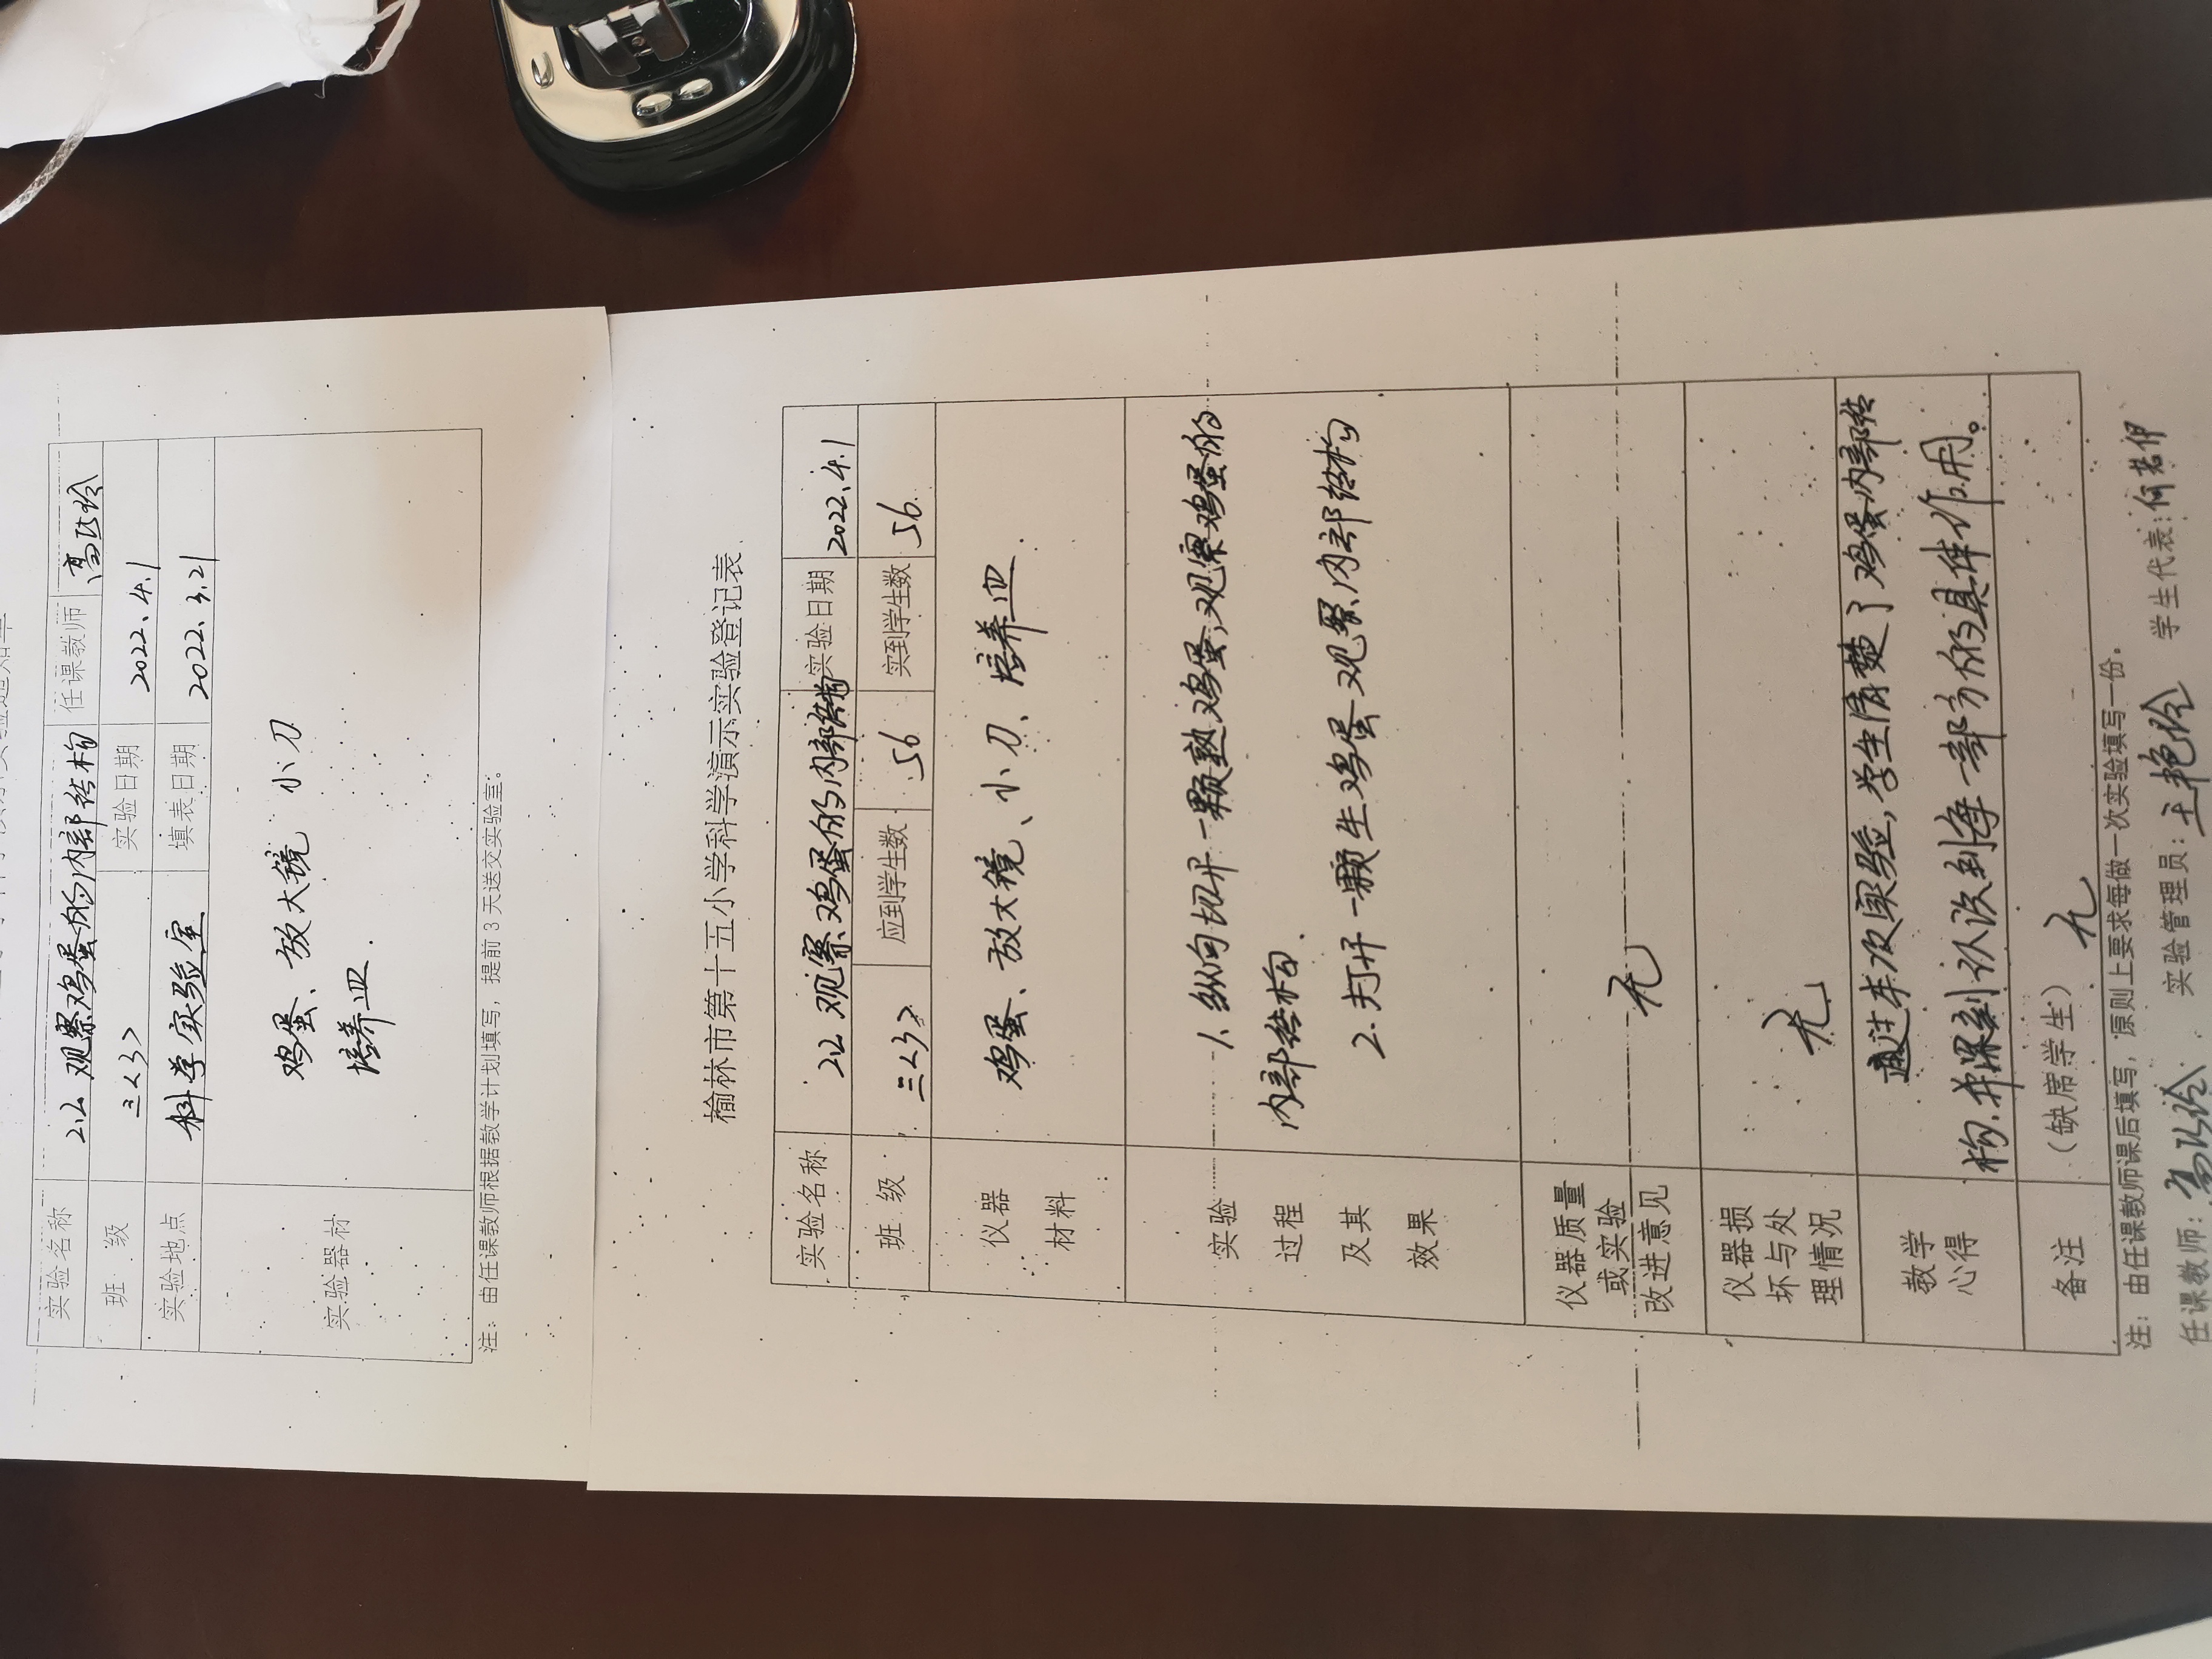 实验名称 2.2 观察鸡蛋的内部结构 任课教师
班 级 三<3> 实验日期 2022.4.1
实验地点 科学实验室 填表日期 2022.3.21
实验器材
鸡蛋、放大镜 小刀
培养皿.
注：由任课教师根据教学计划填写，提前 3 天送交实验室。
榆林市第十五小学科学演示实验登记表
实验名称 2.2 观察鸡蛋的内部结构 实验日期 2022.4.1
班 级 三<3> 应到学生数 56 实到学生数 56.
仪器
材料
鸡蛋、放大镜、小刀、培养皿.
实验
过程
及其
效果
1. 纵向切开一颗熟鸡蛋,观察鸡蛋的
内部结构.
2.打开一颗生鸡蛋观察内部结构
仪器质量
或实验
改进意见
无
仪器损
坏与处
理情况
无
教学
心得
通过本次实验,学生清楚了鸡蛋内部结
构.并深刻认识到每一部分的具体作用。
备注 （缺席学生） 无
注：由任课教师课后填写，原则上要求每做一次实验填写一份。
任课教师: 实验管理员: 王艳玲 学生代表:何若伊